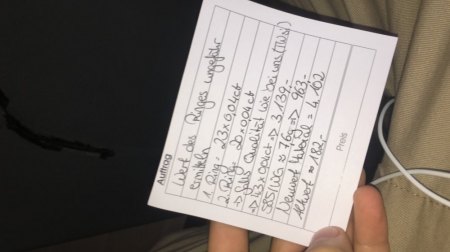 Auftrag
Wert des Ringes ungefähr
ermitteln
1. Ring = 23 x 0,04ct
2. Ring = 20 x 0,04ct
=> Falls Qualität wie bei uns (TW,si)
=> 43 x 0,04ct => 3.139,-
585/WG ≈ 7,6g => 963,-
Neuwert = 4.102
Altwert ≈ 182,-
Preis